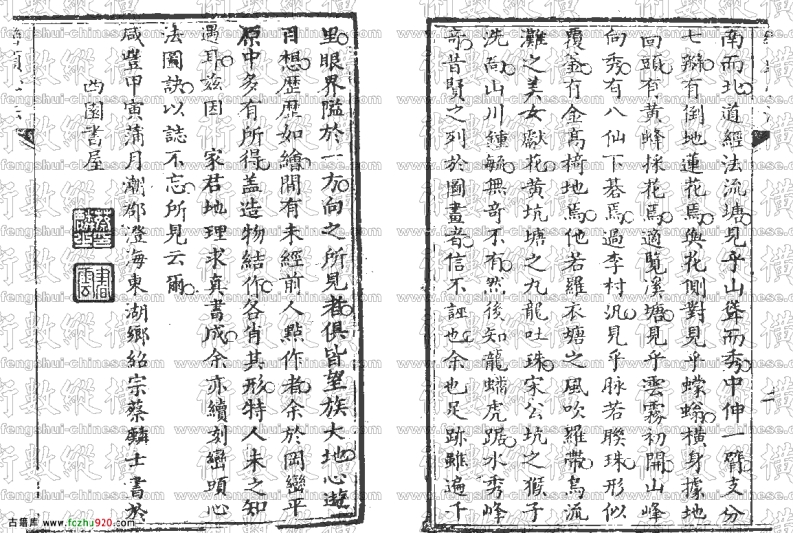 南而北道經法流塘見乎山聳而秀中伸一臂支分
七瓣有倒地蓮花焉與花側對見乎螺螄橫身據地
回頭有黃蜂採花焉適覽溪塘見乎雲霧初開山峰
向秀有八仙下碁焉過李村汎見乎脉若聯珠形似
覆金有金高椅地焉他若羅衣塘之風吹羅帶烏流
灘之美女獻花黃坑塘之九龍吐珠宋公坑之猴子
洗 山川鍾毓無奇不有然後知龍蟠虎踞水秀峰
奇昔賢之列於圖畫者信不誣也余也足跡雖遍千
里眼界隘於一方向之所見者俱皆望族大地心遊
目想歷歷如繪間有未經前人點作者余於岡巒平
原中多有所得蓋造物結作各肖其形特人未之知
遇耳茲因 家君地理求真書成余亦續刻巒頭心
法圖訣以誌不忘所見云爾
咸豐甲寅蒲月潮郡澄海東湖鄉紹宗蔡麟士書於
西園書屋
古籍库 www.fczhu920.com
術數縱橫
www.fengshui-chinese.com